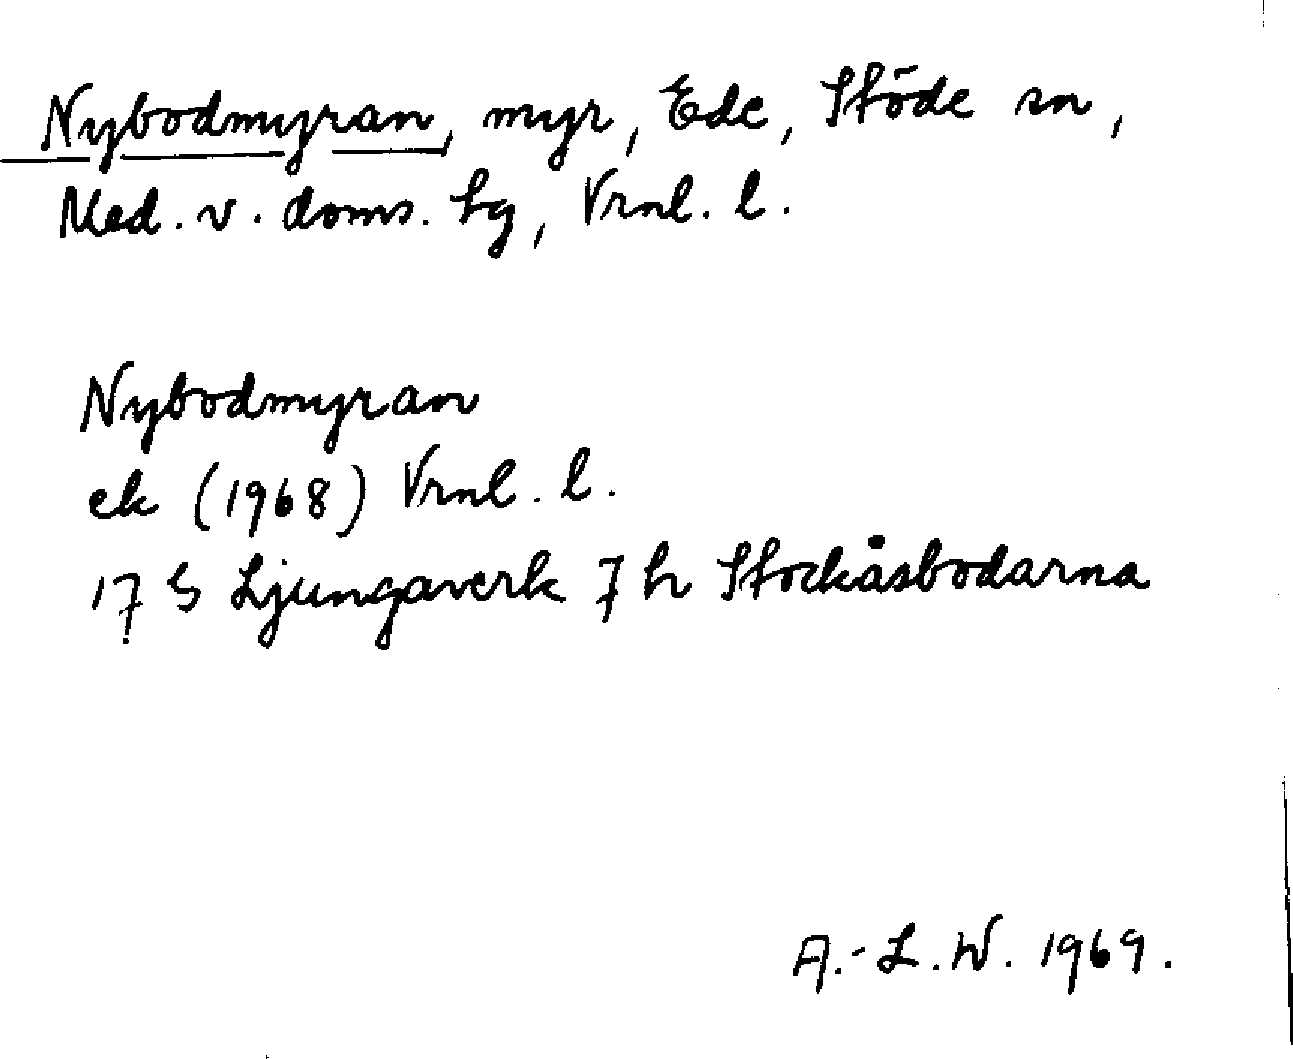 Nybodmyran, myr, Ede, Stöde sn,
Med. v. doms. hg, Vrnl. l.
Nybodmyran
ek (1968) Vrnl. l.
17 G Ljungaverk 7 h Stockåsbodarna
A.-L. W. 1969.